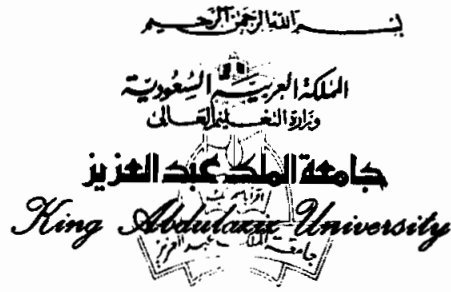 بسم الله الرحمن الرحيم
المملكة العربية السعودية
وزارة التعليم العالى
جامعة الملك عبد العزيز
اقرأ باسم ربك
King Abdulaziz University
جامعة الملك عبد العزيز